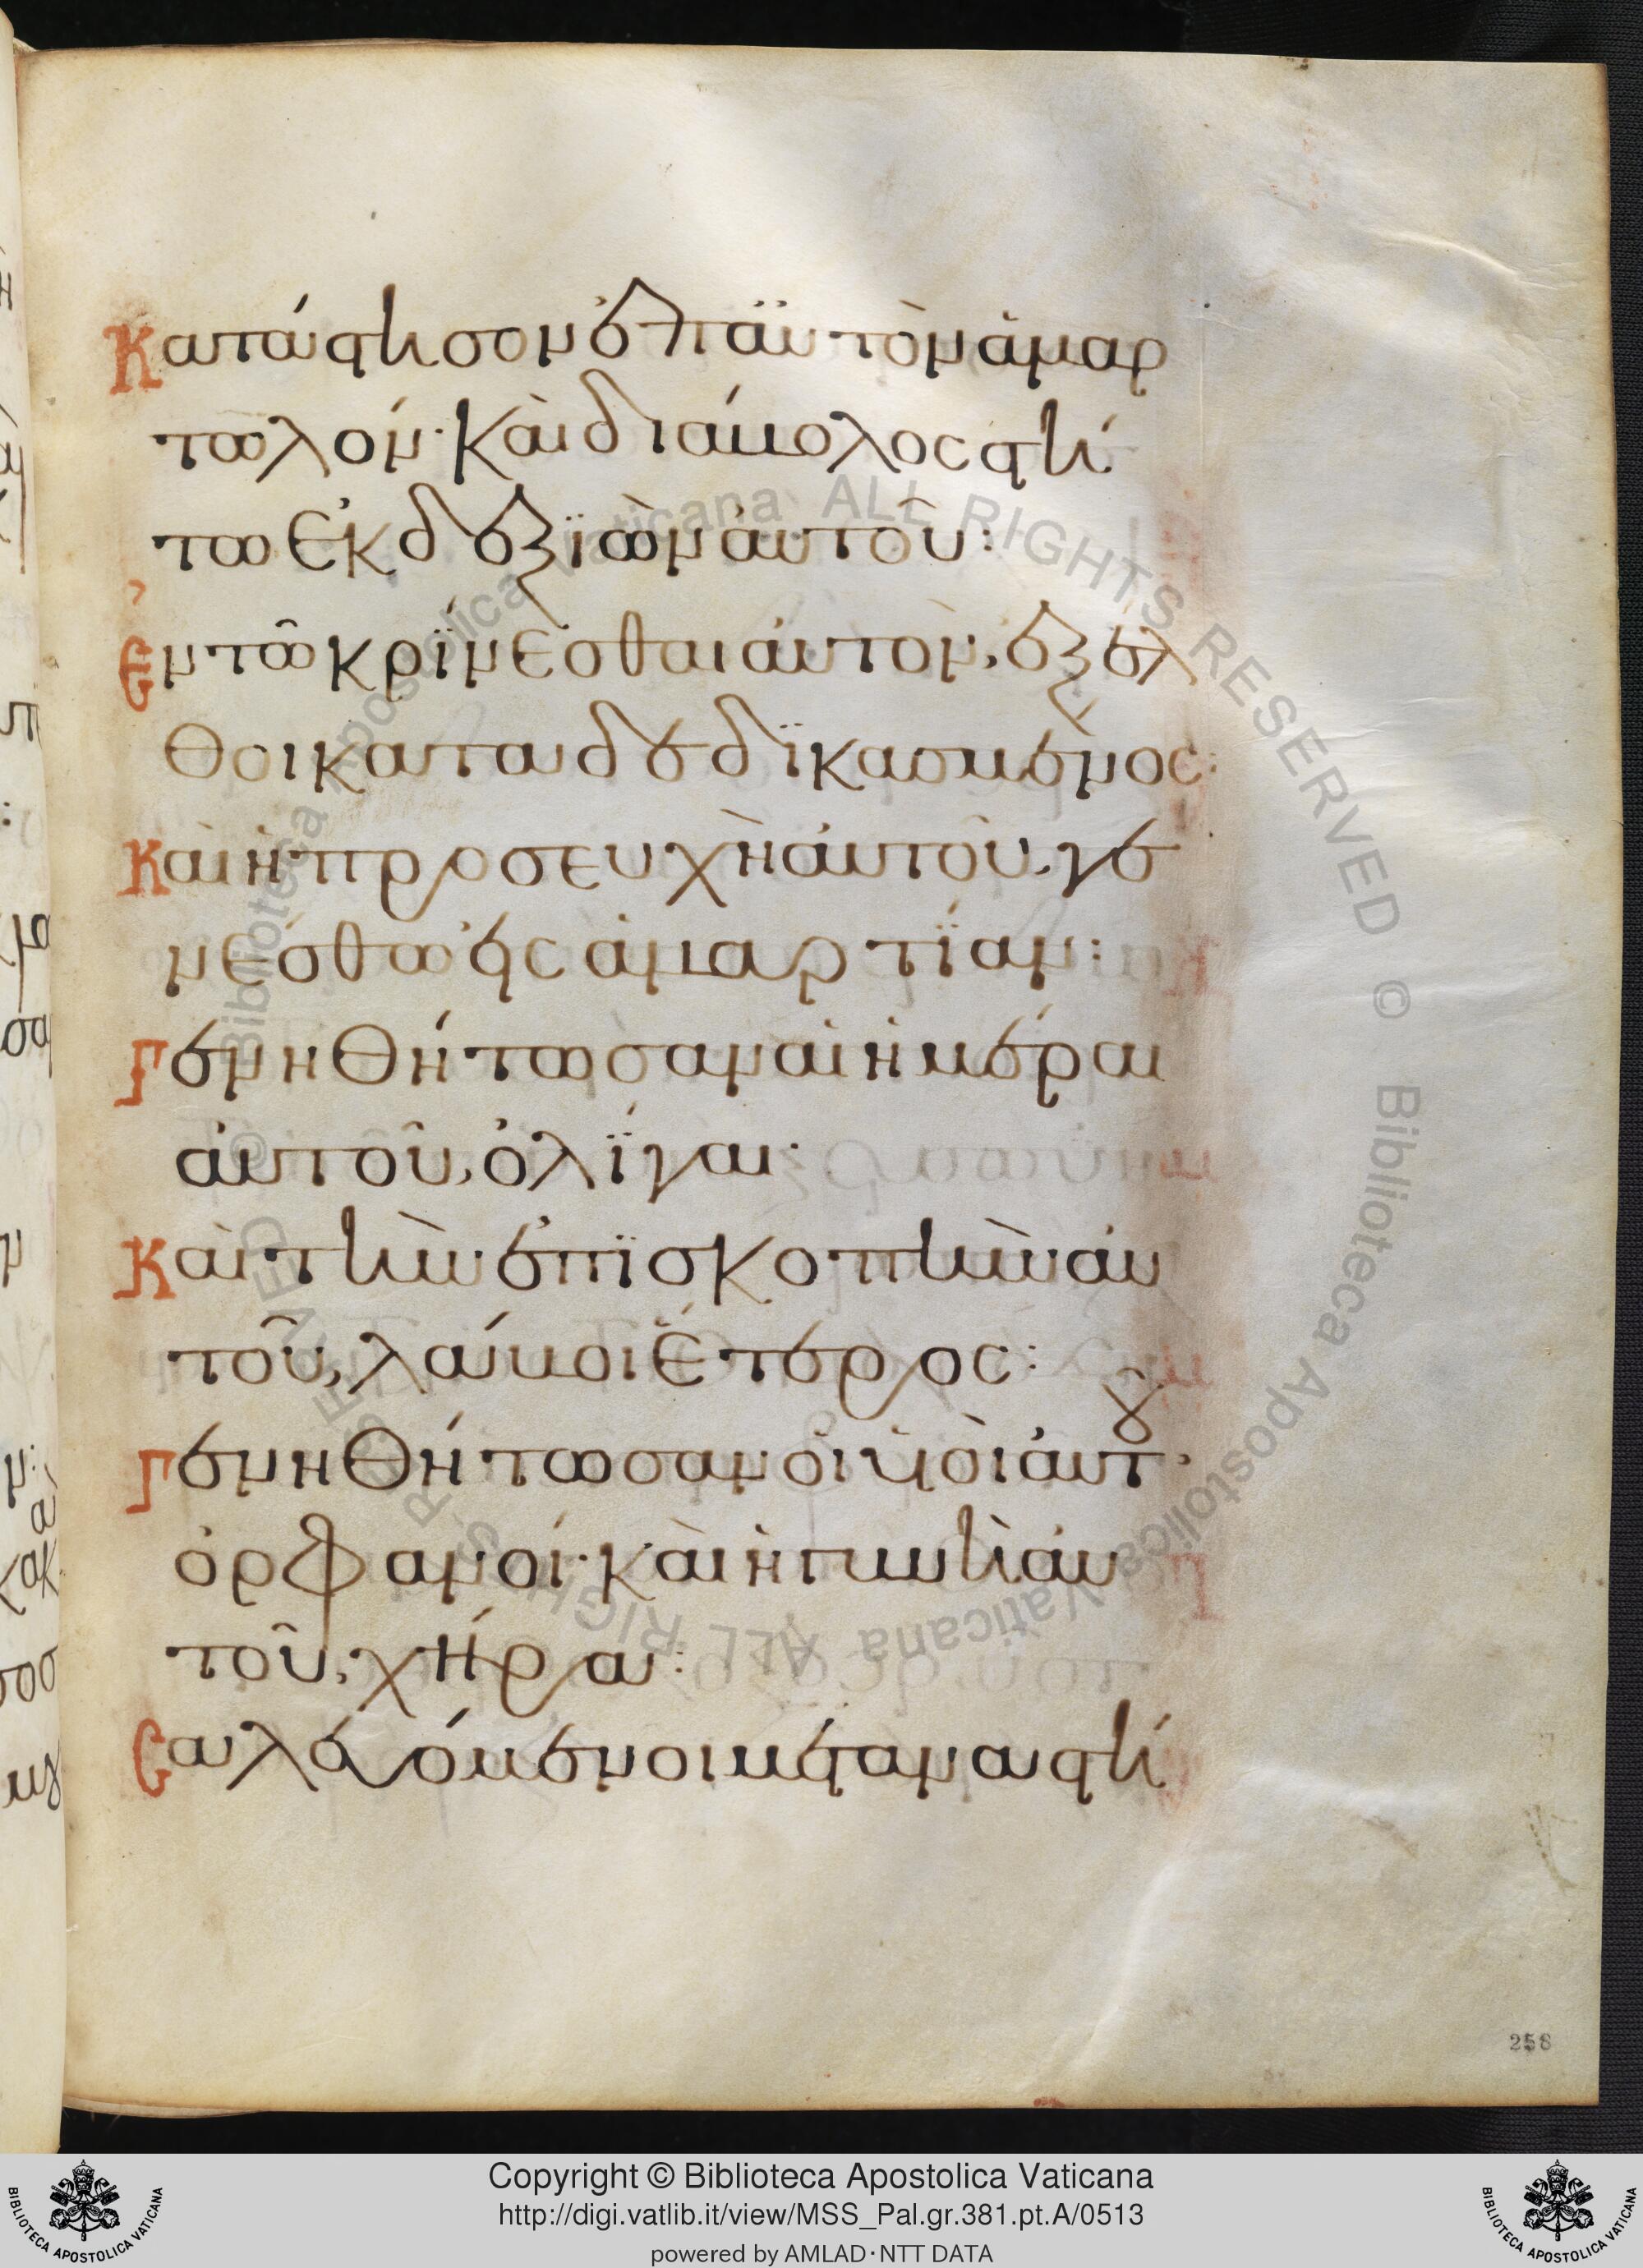 Κατάστησον ἐπ' αὐτὸν ἁμαρ
τωλόν· καὶ διάβολος στή
τω ἐκ δεξιῶν αὐτοῦ:
Ἐν τῶ κρίνεσθαι αὐτὸν, ἐξέλ
θοι καταδεδικασμένος:
Καὶ ἡ προσευχὴ αὐτοῦ, γε
νέσθω εἰς ἁμαρτίαν:
Γενηθήτωσαν αἱ ἡμέραι
αὐτοῦ, ὀλίγαι·
Καὶ τὴν ἐπισκοπὴν αὐ
τοῦ, λάβοι ἕτερος:
Γενηθήτωσαν οἱ υἱοὶ αὐτοῦ
ὀρφανοί· καὶ ἡ γυνὴ αὐ
τοῦ, χήρα:
Σαλευόμενοι μεταναστή
258
Copyright © Biblioteca Apostolica Vaticana
http://digi.vatlib.it/view/MSS_Pal.gr.381.pt.A/0513
powered by AMLAD·NTT DATA
BIBLIOTECA APOSTOLICA VATICANA
BIBLIOTECA APOSTOLICA VATICANA
© Biblioteca Apostolica Vaticana ALL RIGHTS RESERVED © Biblioteca Apostolica Vaticana ALL RIGHTS RESERVED